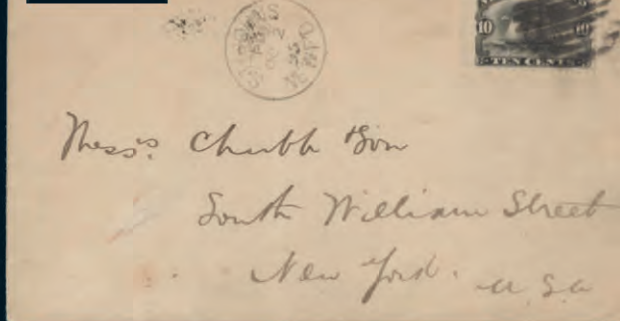 10
TEN CENTS
Mess.rs Chubb & Son
South William Street
New York. U.S.A